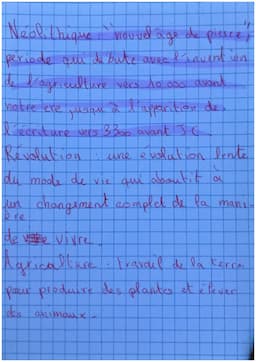 Neolithique "nouvel âge de pierre",
periode qui debute avec l'invention
de l'agriculture vers 10 000 avant
notre ere jusqu'à l'apparition de
l'écriture vers 3300 avant J C.
Révolution : une évolution lente
du mode de vie qui aboutit à
un changement complet de la mani-
ère
de vivre.
Agriculture : travail de la terre
pour produire des plantes et elever
des animaux.